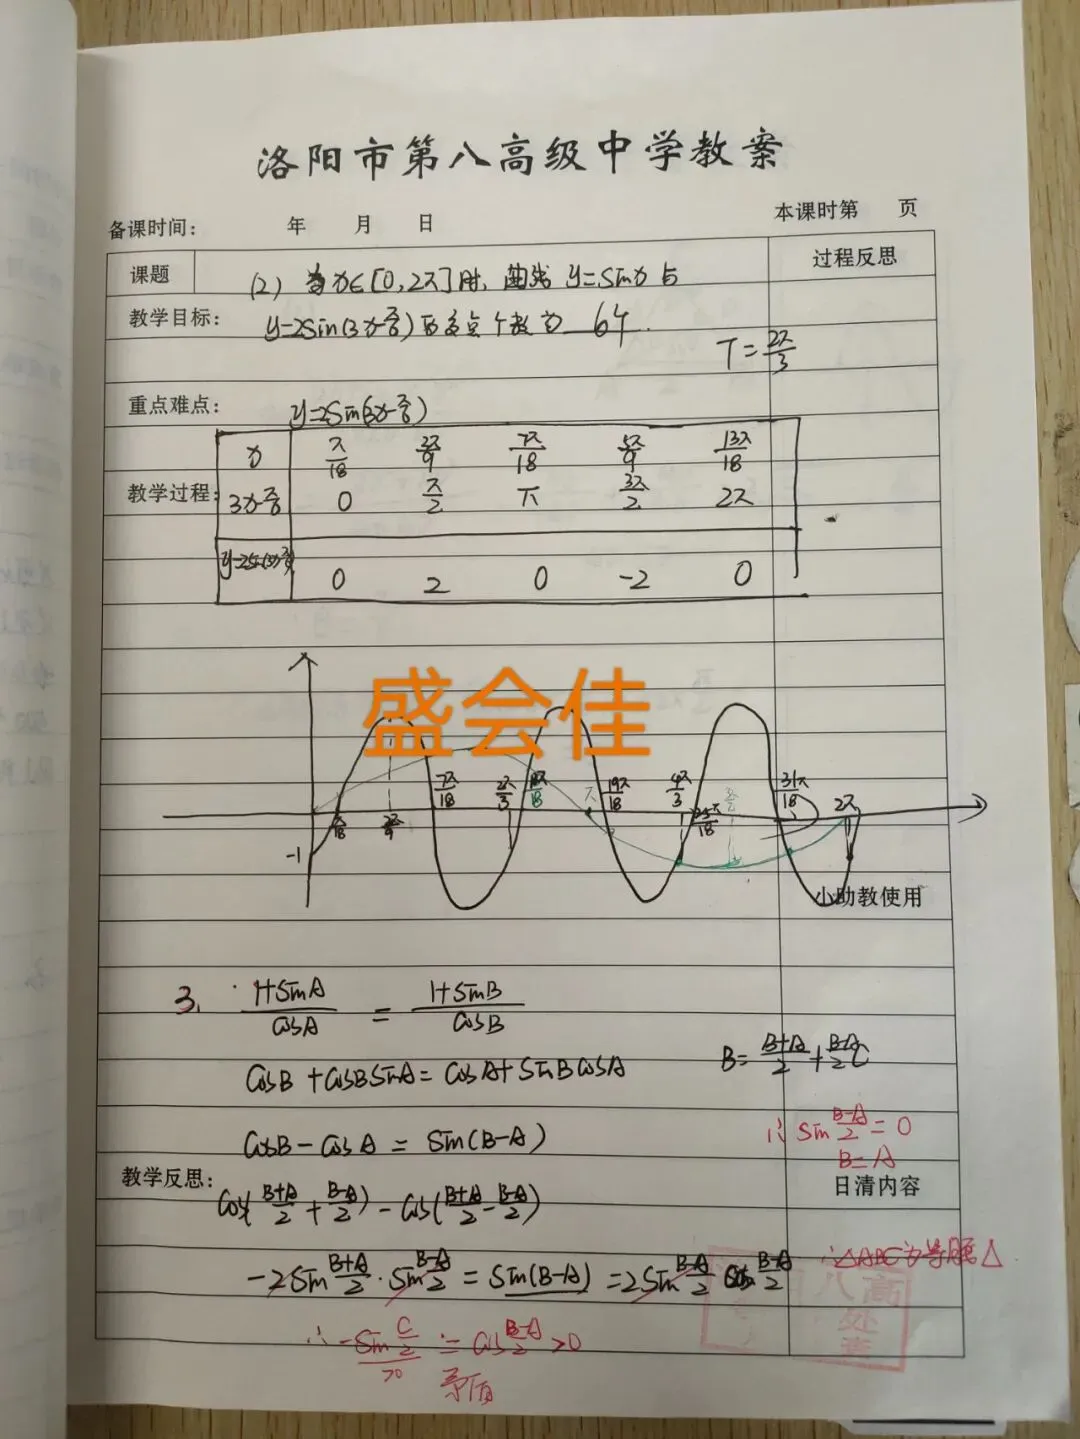 洛阳市第八高级中学教案
备课时间: 年 月 日 本课时第 页
课题 (2) 当x∈[0,2π]时, 曲线 y=sinx 与 过程反思
教学目标: y=2sin(3x-π/6)的交点个数为 6个.
T=2π/3
重点难点: y=2sin(3x-π/6)
x π/18 2π/9 7π/18 5π/9 13π/18
教学过程: 3x-π/6 0 π/2 π 3π/2 2π
y=2sin(3x-π/6) 0 2 0 -2 0
盛会佳
7π/18 2π/3 13π/18 π 19π/18 4π/3 25π/18 31π/18 2π
π/18 2π/9
-1
小助教使用
3. (1+sinA)/cosA = (1+sinB)/cosB
cosB+cosBsinA=cosA+sinBcosA
B=(B+A)/2+(B-A)/2
cosB-cosA=sin(B-A)
∴sin(B-A)/2=0
B=A
教学反思: 日清内容
cos((B+A)/2+(B-A)/2)-cos((B+A)/2-(B-A)/2)
-2sin(B+A)/2·sin(B-A)/2=sin(B-A)=2sin(B-A)/2 cos(B-A)/2
∴△ABC为等腰△
∴-sin C/2=cos(B-A)/2>0
>0 矛盾